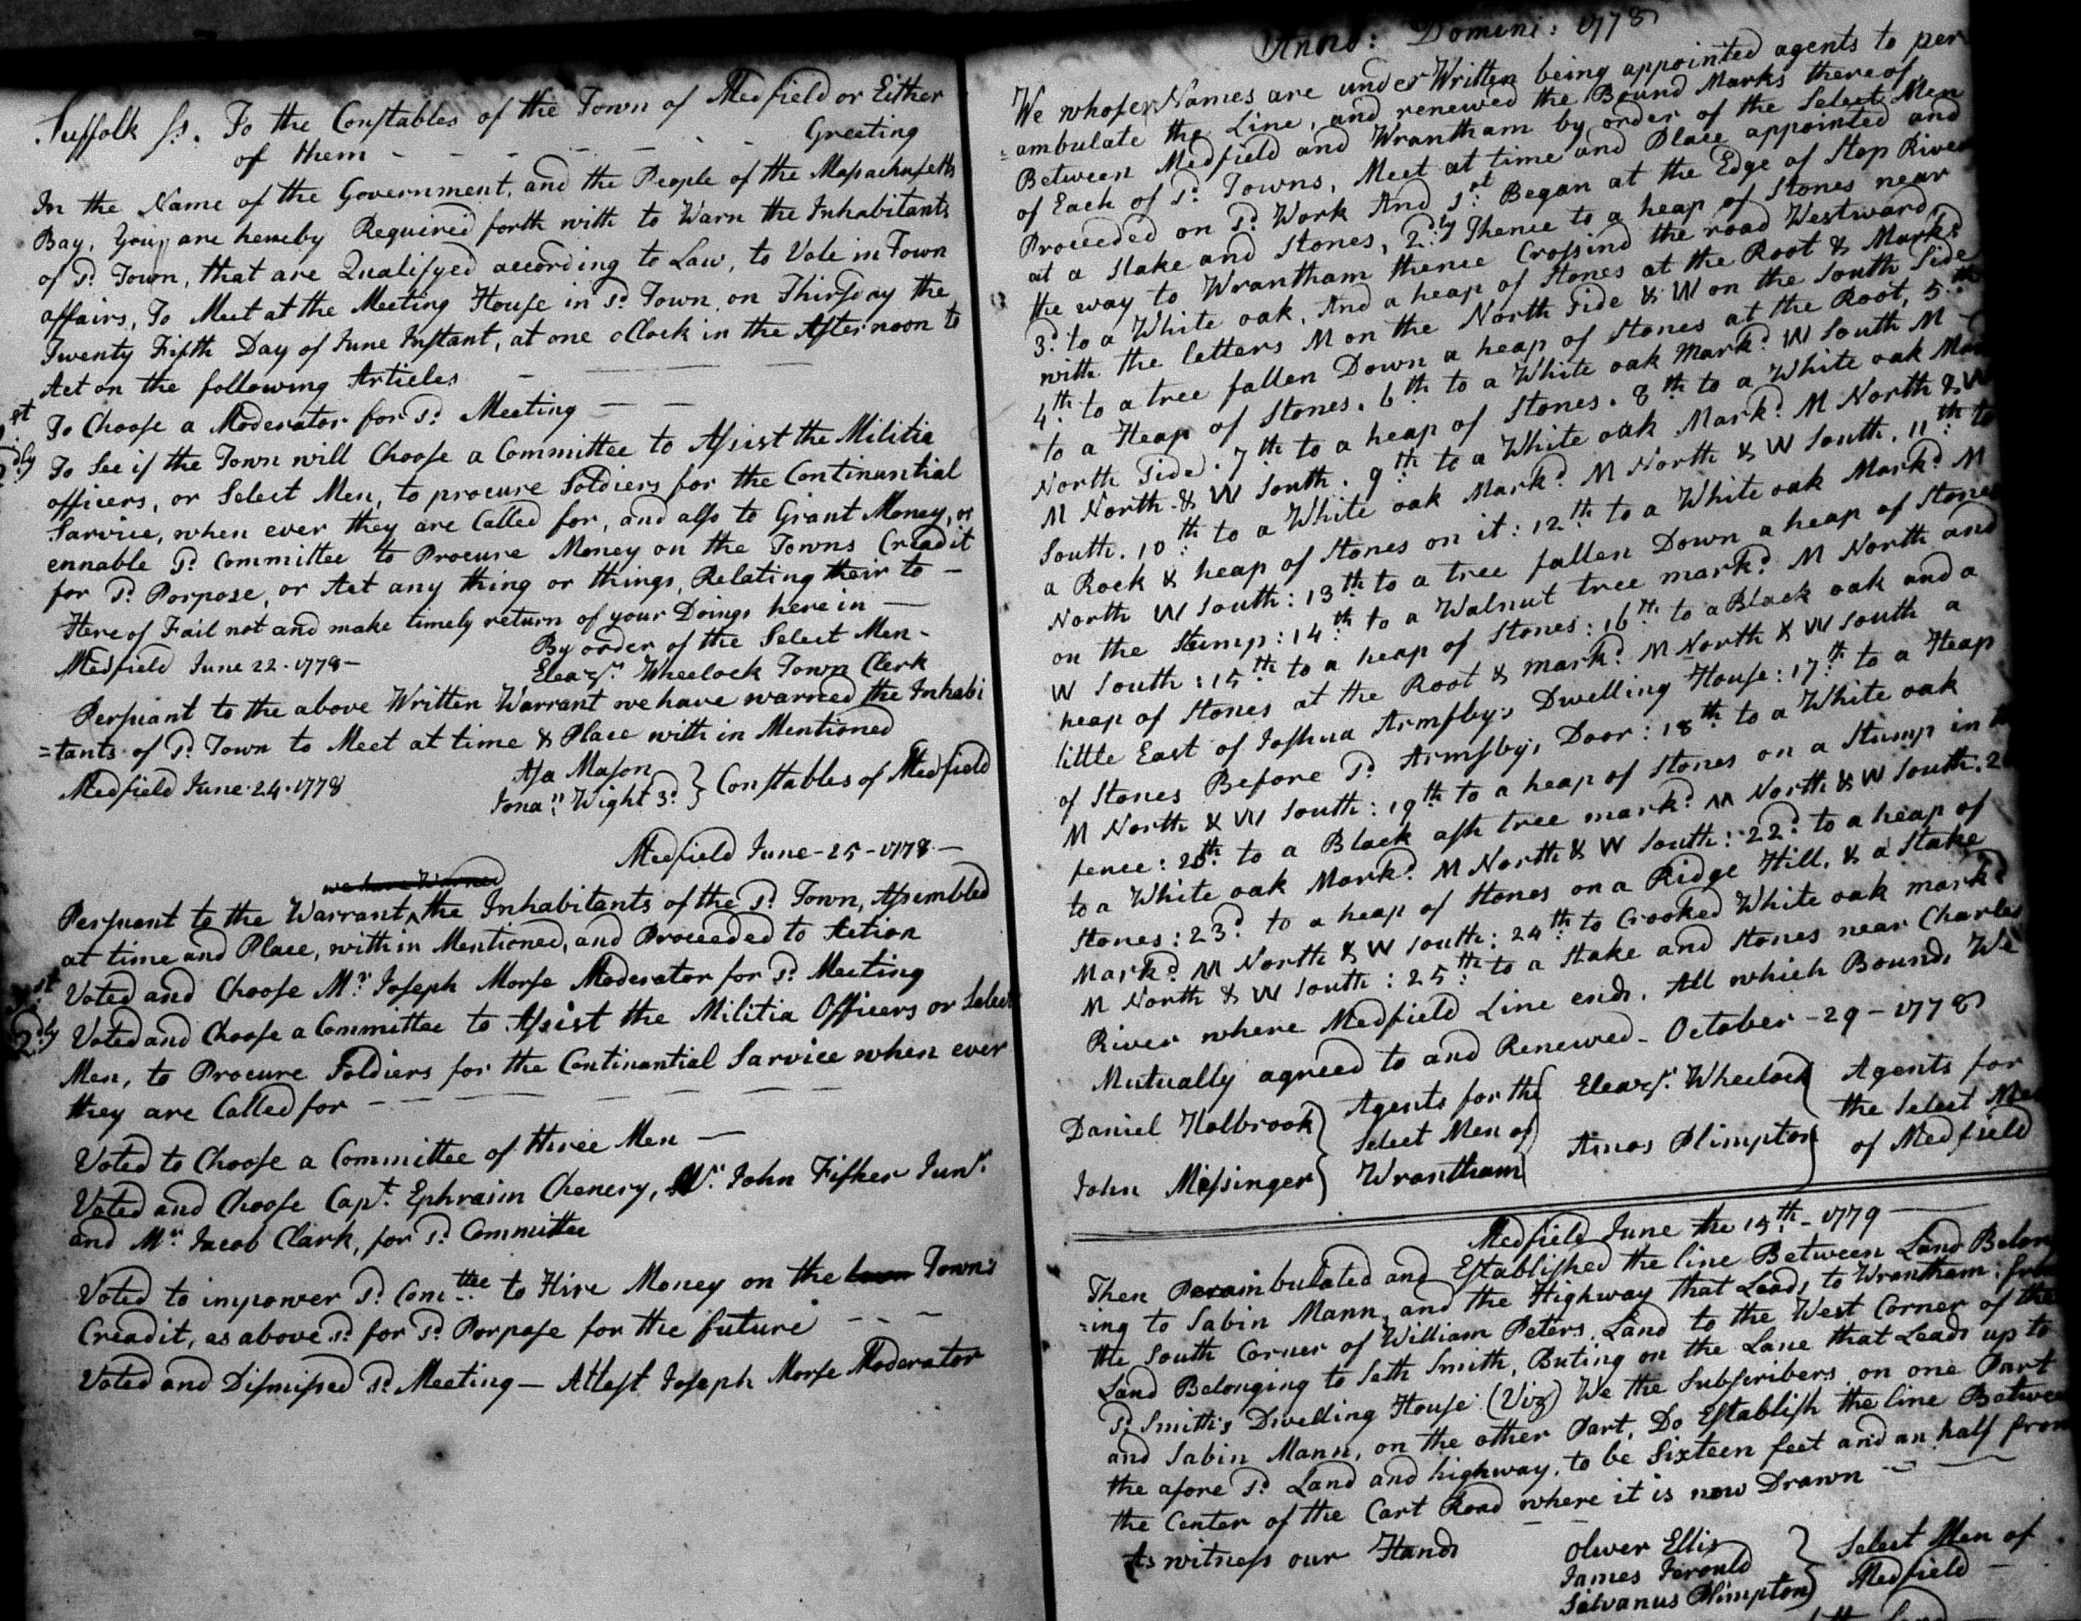 Suffolk ſs. To the Conſtables of the Town of Medfield or Either
of them - - - - - - Greeting
In the Name of the Government, and the People of the Maſsachuſetts
Bay, You are hereby Required forth with to Warn the Inhabitants
of Sd. Town, that are Qualifyed according to Law, to Vote in Town
affairs, To Meet at the Meeting Houſe in sd. Town on Thirſday the
Twenty Fifth Day of June Inſtant, at one oClock in the Afternoon to
Act on the following Articles - —
1st To Chooſe a Moderator for Sd. Meeting — —
2dly To See if the Town will Chooſe a Committee to Aſsist the Militia
officers, or Select Men, to procure Soldiers for the Continantial
Sarvice, when ever they are Called for, and alſo to Grant Money, or
ennable Sd. Committee to Procure Money on the Towns Creadit
for Sd. Porpoſe, or Act any thing or things, Relating their to —
Hereof Fail not and make timely return of your Doings here in —
By order of the Select Men -
Medfield June 22 - 1778 - Eleazr. Wheelock Town Clerk
Perſuant to the above Written Warrant we have warned the Inhabi
=tants of Sd. Town to Meet at time & Place with in Mentioned
Medfield June 24 - 1778 Aſa Maſon
Jonan. Wight 3d. } Conſtables of Medfield
Medfield June - 25 - 1778 —
we have Warned
Perſuant to the Warrant ^ the Inhabitants of the Sd. Town, Aſsembled
at time and Place, with in Mentioned, and Proceeded to Action
1st Voted and Chooſe Mr. Joſeph Morſe Moderator for Sd. Meeting
2dly Voted and Chooſe a Committee to Aſsist the Militia Officers or Select
Men, to Procure Soldiers for the Continantial Sarvice when ever
they are Called for - - - — — —
Voted to Chooſe a Committee of three Men —
Voted and Chooſe Capt. Ephraim Chenery, Mr. John Fiſher Junr.
and Mr. Jacob Clark, for Sd. Committee
Voted to impower Sd. Comttee to Hire Money on the town Towns
Creadit, as above sd. for Sd. Porpoſe for the future - - -
Voted and Diſmiſsed Sd. Meeting — Atteſt Joſeph Morſe Moderator
Anno: Domini: 1778
We whoſe Names are under Written being appointed agents to per
=ambulate the Line, and renewed the Bound Marks thereof
Between Medfield and Wrantham by order of the Select Men
of Each of Sd. Towns, Meet at time and Place appointed and
Proceeded on Sd. Work And 1st Began at the Edge of Stop River
at a Stake and Stones, 2dly Thence to a heap of Stones near
the way to Wrantham thence Croſsind the road Westward,
3d. to a White oak, And a heap of Stones at the Root & Markd
with the letters M on the North Side & W on the South Side
4th to a tree fallen Down a heap of Stones at the Root, 5th
to a Heap of Stones. 6th to a White oak Markd. W South M
North Side. 7th to a heap of Stones. 8th to a White oak Mark
M North & W South. 9th to a White oak Markd. M North & W
South. 10th to a White oak Markd. M North & W South. 11th to
a Rock & heap of Stones on it: 12th to a White oak Markd. M
North W South: 13th to a tree fallen Down a heap of Stones
on the Stump: 14th to a Walnut tree markd. M North and
W South: 15th to a heap of Stones: 16th to a Black oak and a
heap of Stones at the Root & markd. M North & W South a
little East of Joſhua Armſby's Dwelling Houſe: 17th to a Heap
of Stones Before Sd. Armſby's Door: 18th to a White oak
M North & W South: 19th to a heap of Stones on a Stump in
fence: 20th to a Black aſh tree markd. M North & W South. 2
to a White oak Markd. M North & W South: 22d. to a heap of
Stones: 23d. to a heap of Stones on a Ridge Hill, & a Stake
Markd. M North & W South: 24th to Crooked White oak markd
M North & W South: 25th to a Stake and Stones near Charles
River where Medfield Line ends. All which Bounds We
Mutually agreed to and Renewed - October - 29 - 1778
Daniel Holbrook } Agents for the { Eleazr. Wheelock } Agents for
Select Men of the Select Men
John Meſsinger } Wrantham { Amos Plimpton } of Medfield
Medfield June the 15th - 1779 —
Then Perambulated and Eſtabliſhed the line Between Land Belon
=ing to Sabin Mann, and the Highway that Leads to Wrantham, from
the South Corner of William Peters Land to the West Corner of the
Land Belonging to Seth Smith, Buting on the Lane that Leads up to
Sd. Smith's Dwelling Houſe (Viz) We the Subſcribers on one Part
and Sabin Mann, on the other Part, Do Eſtabliſh the line Between
the afore Sd. Land and highway, to be Sixteen feet and an half from
the Center of the Cart Road where it is now Drawn - —
As witneſs our Hands
Oliver Ellis
James Jerould } Select Men of
Silvanus Plimpton } Medfield —